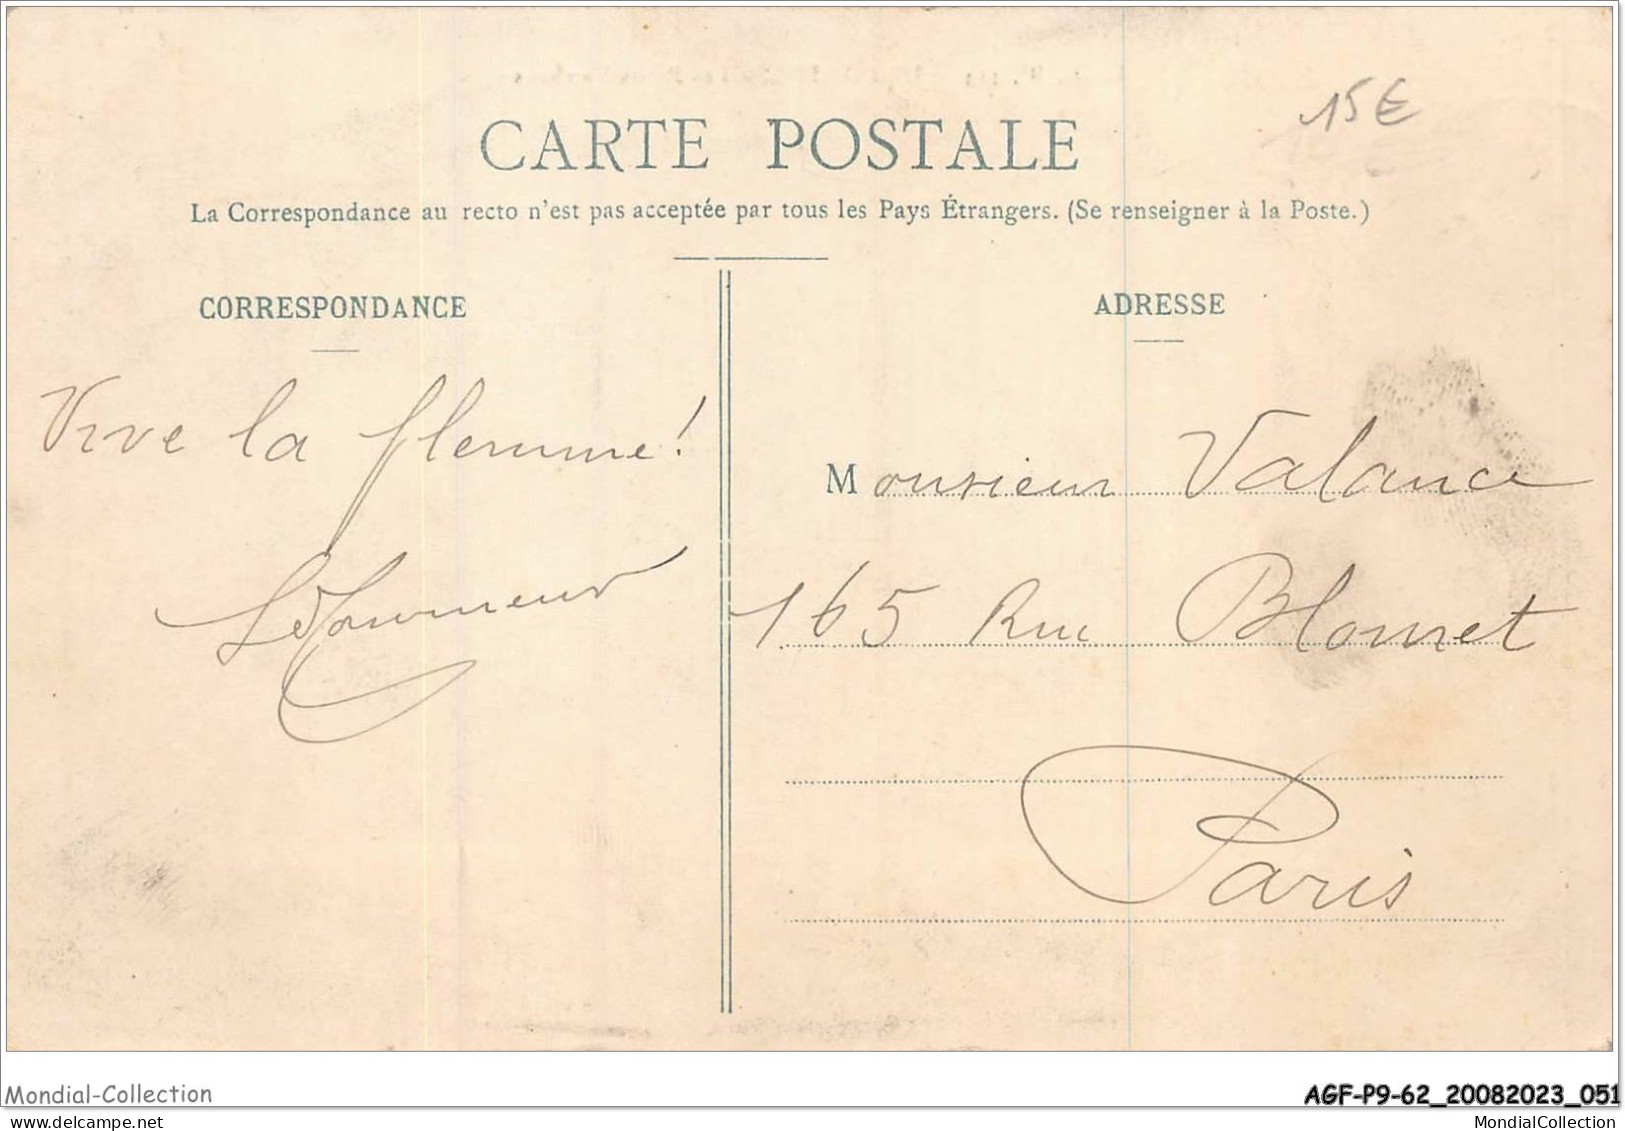 15€
CARTE POSTALE
La Correspondance au recto n'est pas acceptée par tous les Pays Étrangers. (Se renseigner à la Poste.)
CORRESPONDANCE
Vive la flemme!
ADRESSE
Monsieur Valance
165 Rue Blomet
Paris
Mondial-Collection
AGF-P9-62_20082023_051
delcampe.net
MondialCollection